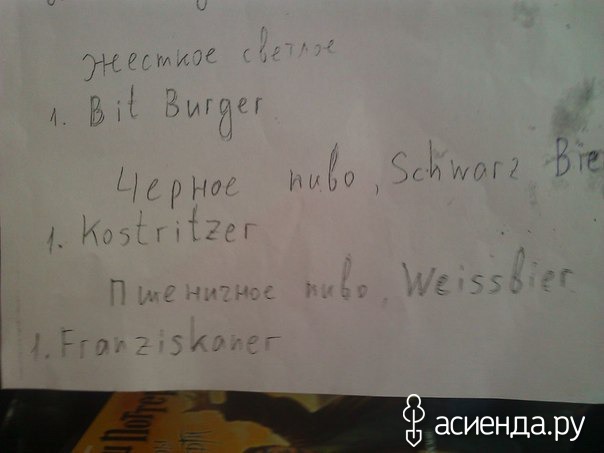 Жесткое светлое
1. Bit Burger
Черное пиво, Schwarz Bie
1. Kostritzer
Пшеничное пиво, Weissbier
1. Franziskaner
и Поттер
асиенда.ру